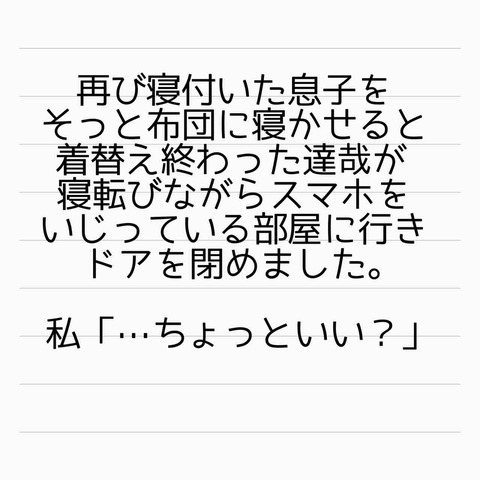 再び寝付いた息子を
そっと布団に寝かせると
着替え終わった達哉が
寝転びながらスマホを
いじっている部屋に行き
ドアを閉めました。
私「…ちょっといい？」